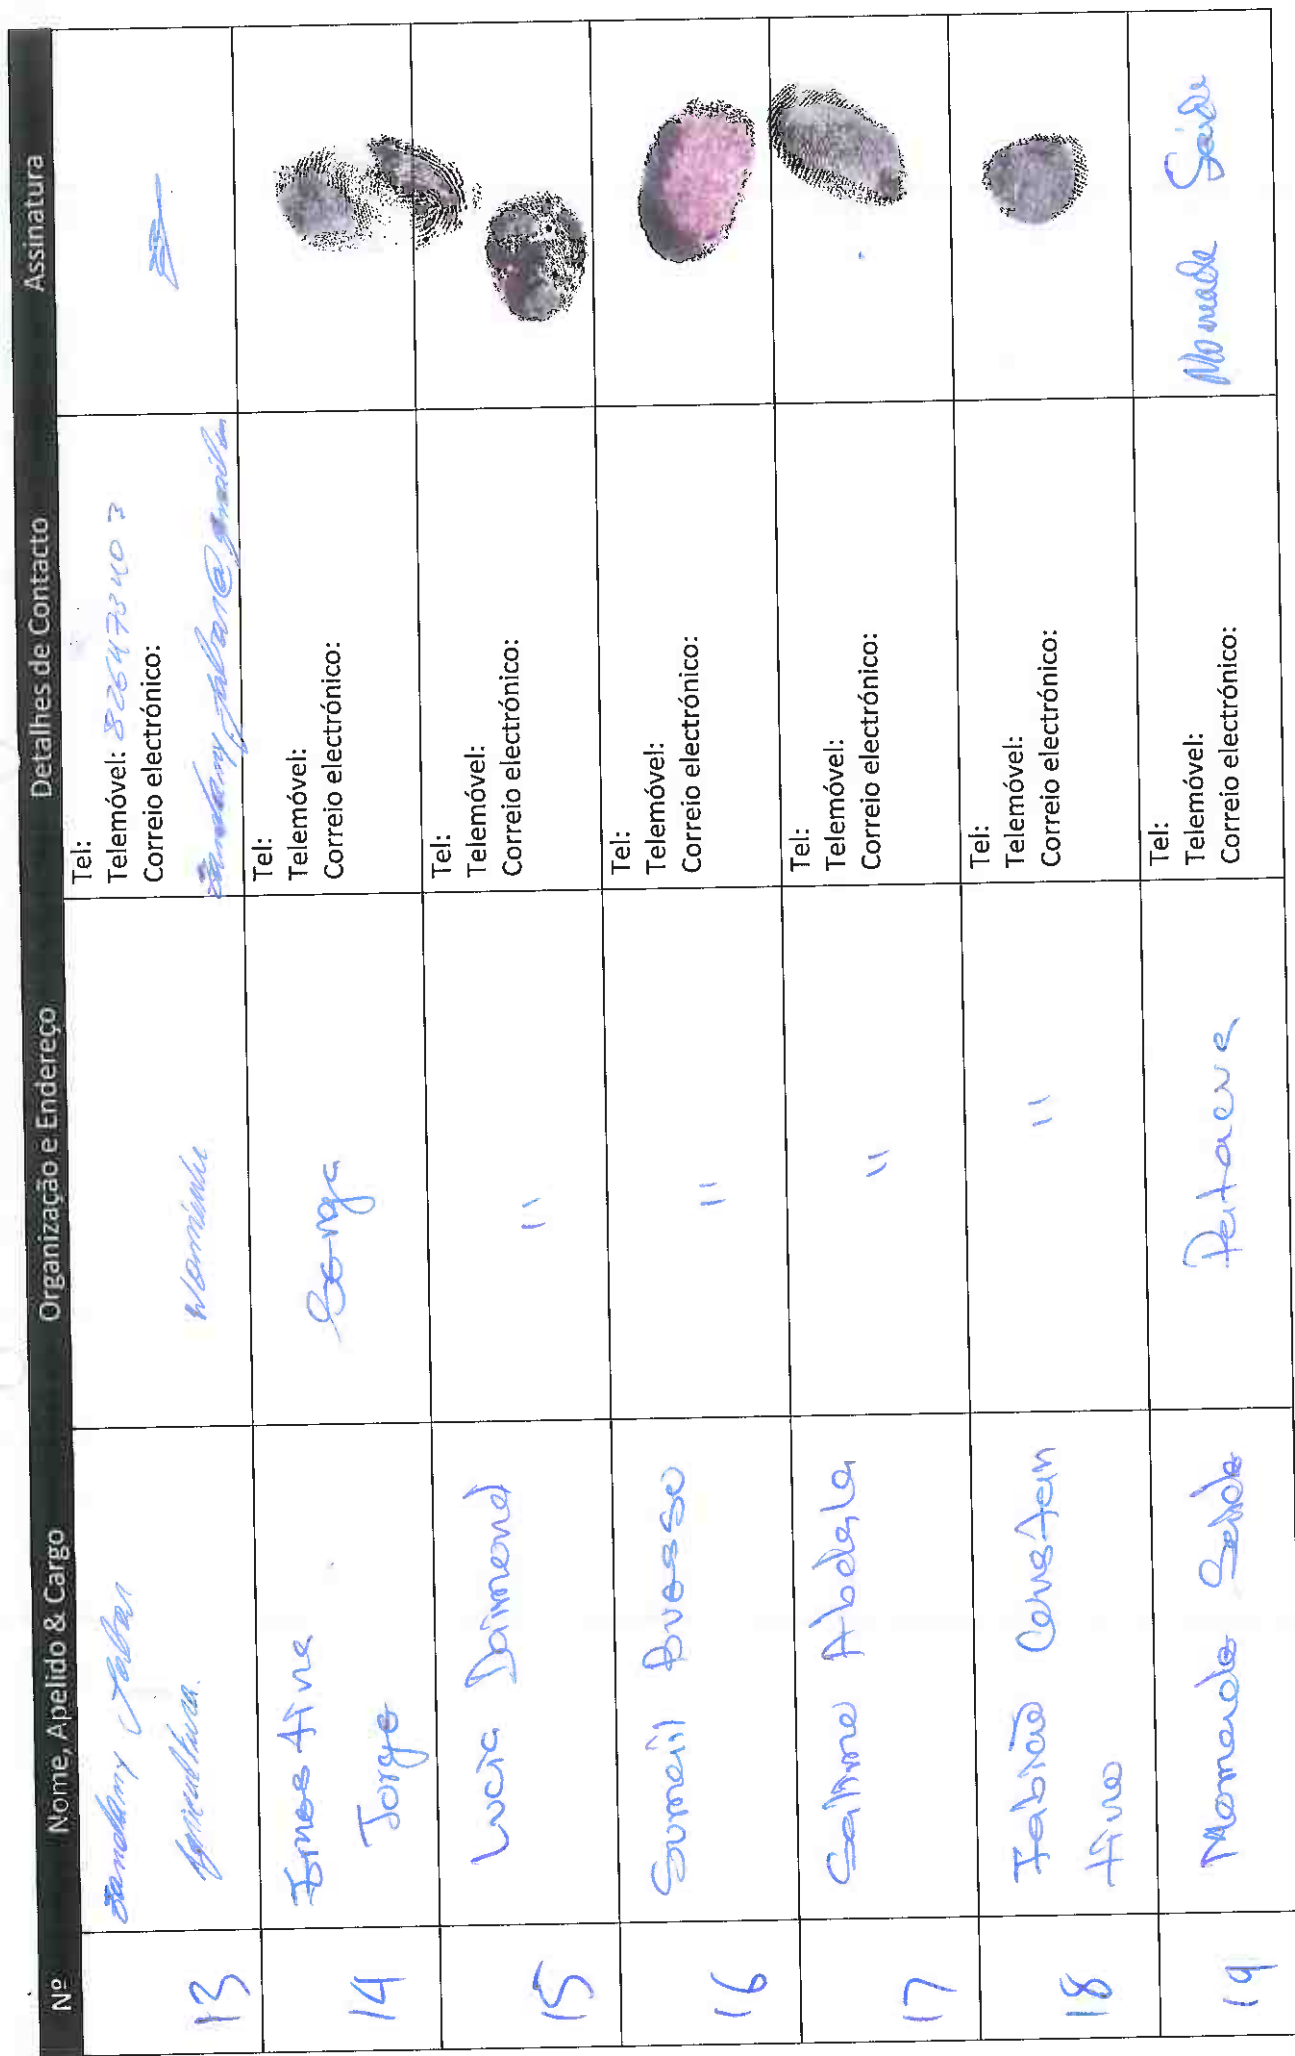 Nº Nome, Apelido & Cargo Organização e Endereço Detalhes de Contacto Assinatura
Tel:
Telemóvel: 826473403
Correio electrónico:
13
Agricultura
14 Ernestina
Jorge
Tel:
Telemóvel:
Correio electrónico:
15 Lucia Daimond "
Tel:
Telemóvel:
Correio electrónico:
16 Sumail "
Tel:
Telemóvel:
Correio electrónico:
17 Salimo Abdala "
Tel:
Telemóvel:
Correio electrónico:
18 Fabião "
tino
Tel:
Telemóvel:
Correio electrónico:
19 Momade Saide
Tel:
Telemóvel:
Correio electrónico:
Momade Saide